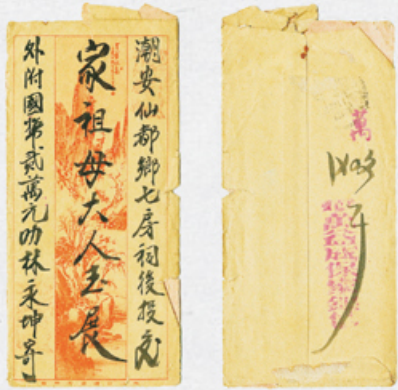 潮安仙都鄉七房祠後投交
家祖母大人玉展
外附國幣貳萬元叻林永坤寄
萬